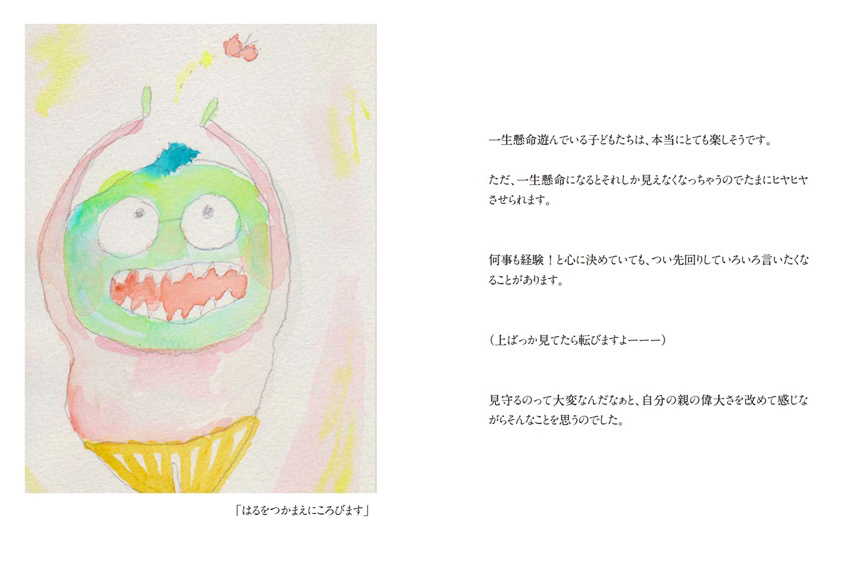 一生懸命遊んでいる子どもたちは、本当にとても楽しそうです。
ただ、一生懸命になるとそれしか見えなくなっちゃうのでたまにヒヤヒヤ
させられます。
何事も経験！と心に決めていても、つい先回りしていろいろ言いたくな
ることがあります。
（上ばっか見てたら転びますよーーー）
見守るのって大変なんだなぁと、自分の親の偉大さを改めて感じな
がらそんなことを思うのでした。
「はるをつかまえにころびます」